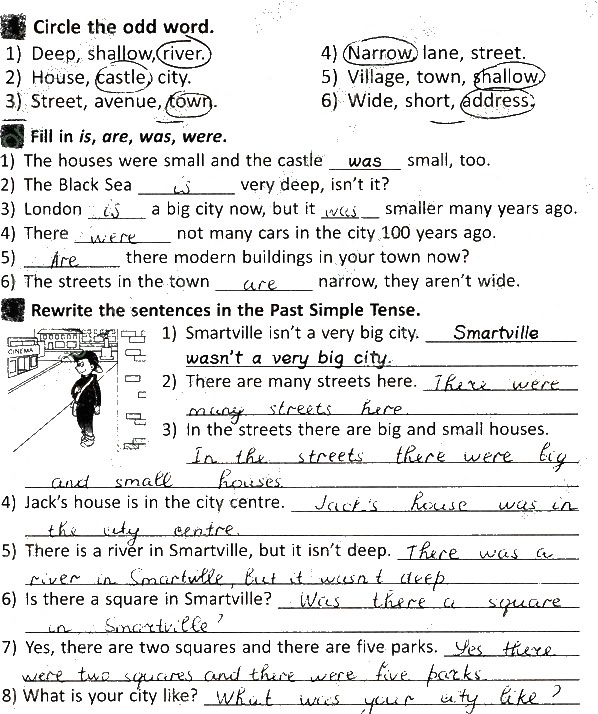 Circle the odd word.
1) Deep, shallow, river.
4) Narrow, lane, street.
2) House, castle, city.
5) Village, town, shallow.
3) Street, avenue, town.
6) Wide, short, address.
Fill in is, are, was, were.
1) The houses were small and the castle was small, too.
2) The Black Sea is very deep, isn't it?
3) London is a big city now, but it was smaller many years ago.
4) There were not many cars in the city 100 years ago.
5) Are there modern buildings in your town now?
6) The streets in the town are narrow, they aren't wide.
Rewrite the sentences in the Past Simple Tense.
CINEMA
1) Smartville isn't a very big city. Smartville
wasn't a very big city.
2) There are many streets here. There were
many streets here.
3) In the streets there are big and small houses.
In the streets there were big
and small houses
4) Jack's house is in the city centre. Jack's house was in
the city centre.
5) There is a river in Smartville, but it isn't deep. There was a
river in Smartville, but it wasn't deep
6) Is there a square in Smartville? Was there a square
in Smartville?
7) Yes, there are two squares and there are five parks. Yes there
were two squares and there were five parks.
8) What is your city like? What was your city like?